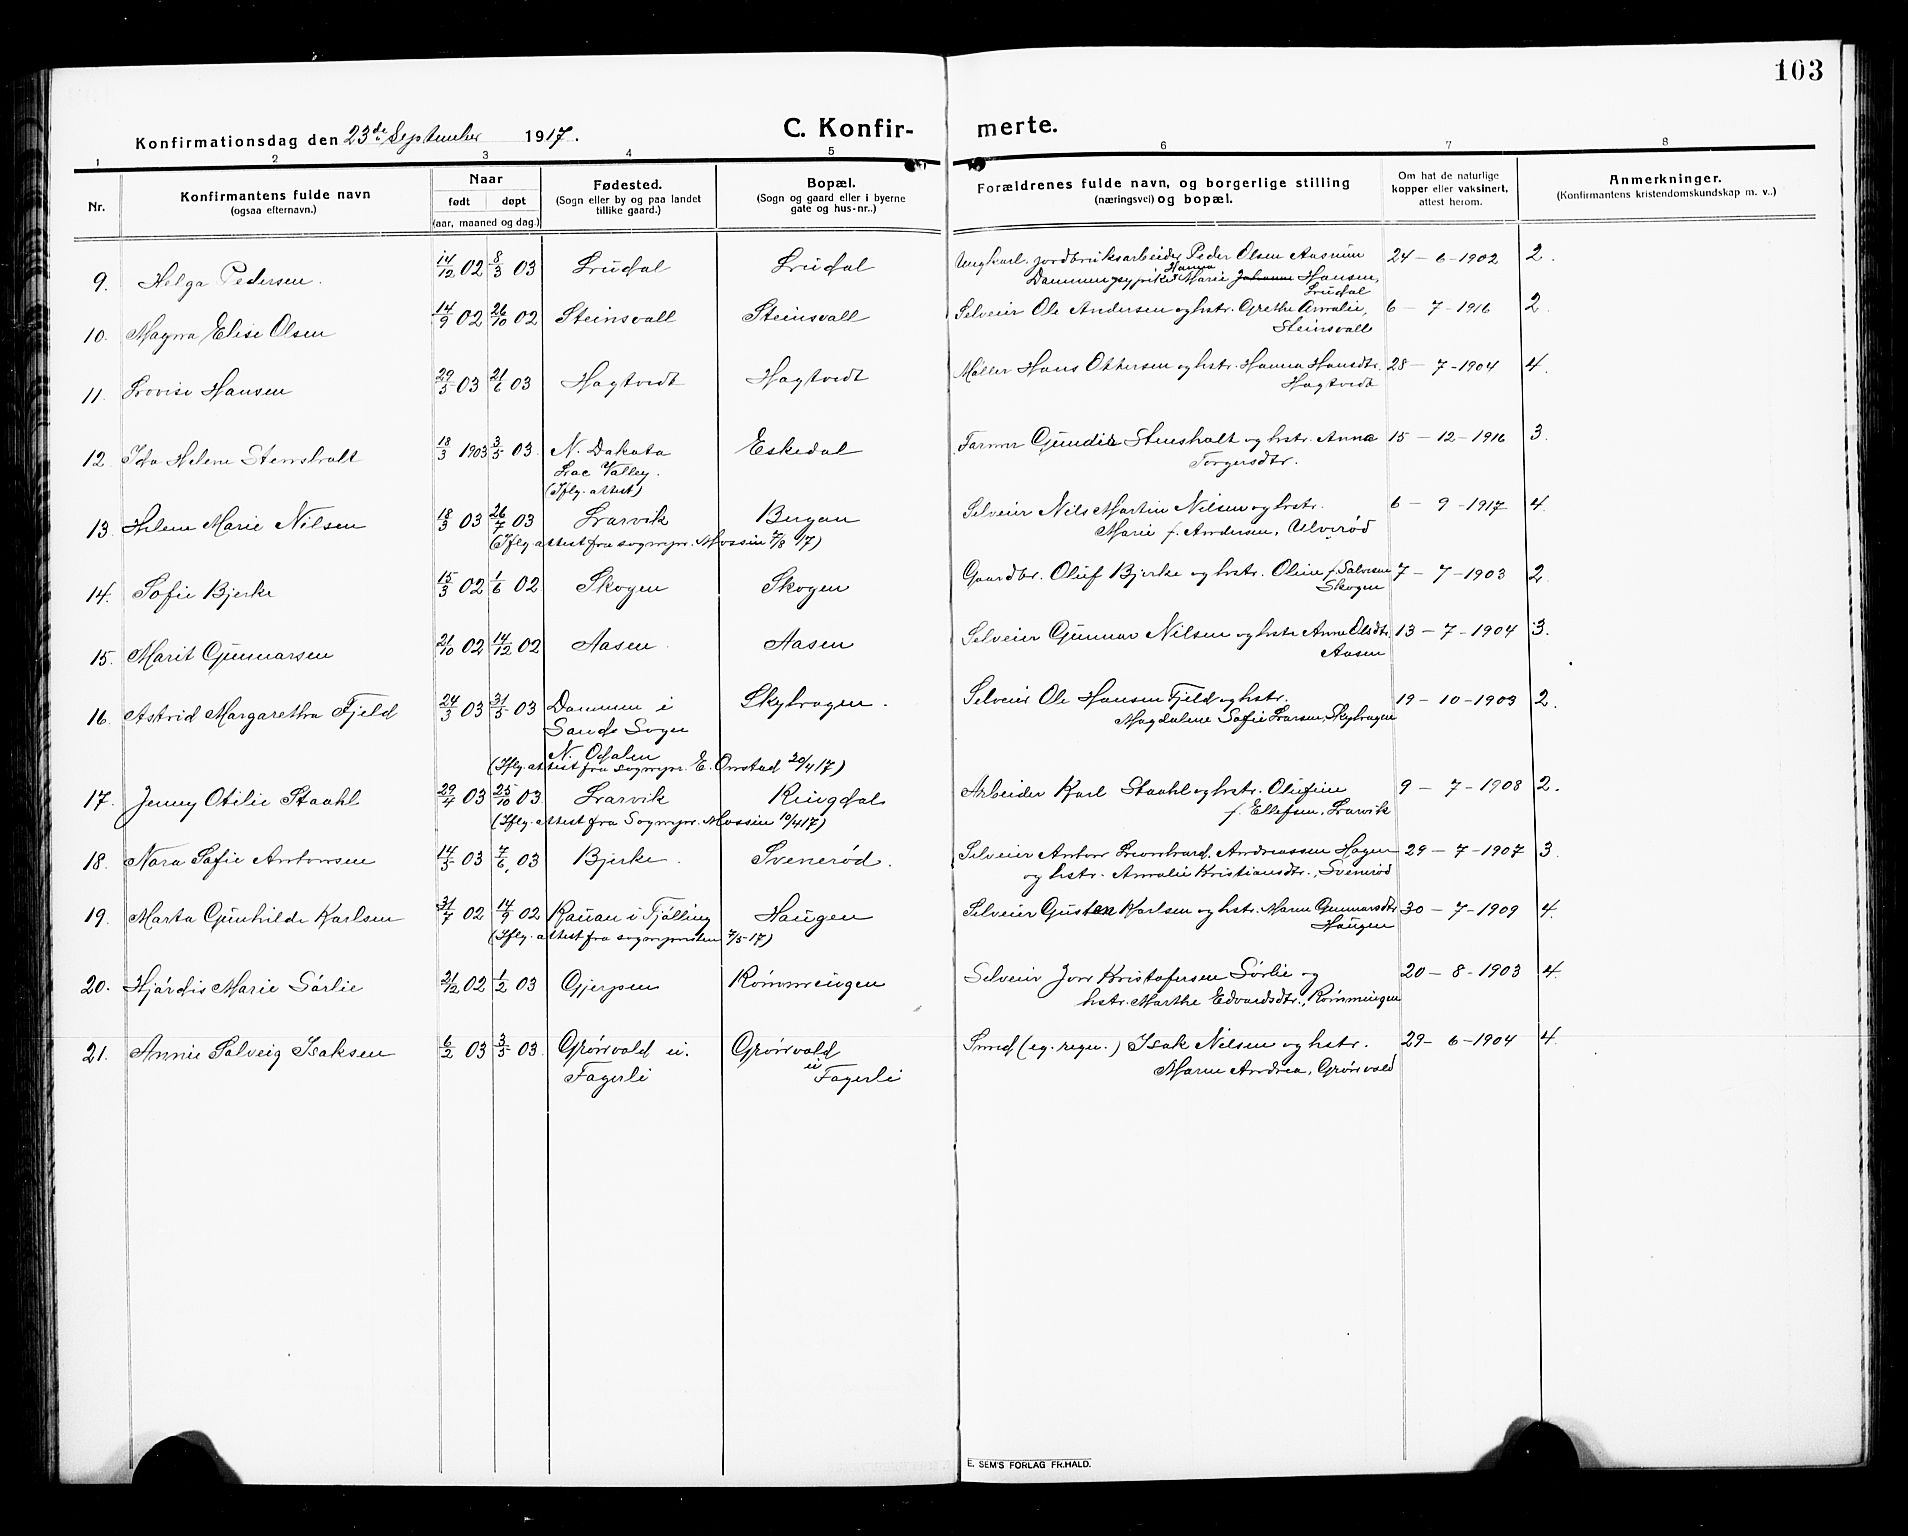 103
Konfirmationsdag den 23de September 1917.
C. Konfir-
merte.
1 2 3 4 5 6 7 8
Nr.
Konfirmantens fulde navn
(ogsaa efternavn.)
Naar
født døpt
(aar, maaned og dag.)
Fødested.
(Sogn eller by og paa landet
tillike gaard.)
Bopæl.
(Sogn og gaard eller i byerne
gate og hus-nr..)
Forældrenes fulde navn, og borgerlige stilling
(næringsvei) og bopæl.
Om hat de naturlige
kopper eller vaksinert,
attest herom.
Anmerkninger.
(Konfirmantens kristendomskundskap m. v..)
9. Helga Pedersen. 14/12 02 8/3 03 Lrudal Lrudal Ungkarl, jordbruksarbeider Peder Olsen Aasrum 24-6-1902 2.
Hanna
Dammen og pike Marie Johanne Hansen,
Lrudal
10. Magna Elise Olsen 14/9 02 26/10 02 Steinsvall Steinsvall Selveier Ole Andersen og hstr. Grethe Amalie, 6-7-1916 2.
Steinsvall
11. Lovise Hansen 29/3 03 21/6 03 Hagtvedt Hagtvedt Møller Hans Ottersen og hstr. Hanna Hansdtr. 28-7-1904 4.
Hagtvedt
12. Ida Helene Stensholt 18/3 1903 3/5 03 N. Dakota Eskedal Farmer Gunder Stensholt og hstr. Anna 15-12-1916 3.
Lac Valley. Torgersdtr.
(Iflg. attest)
13. Helene Marie Nilsen 18/3 03 26/7 03 Larvik Bergan Selveier Nils Martin Nilsen og hstr. 6-9-1917 4.
(Iflg. attest fra sognepr. Mossin 2/8 17) Marie f. Andersen, Ulverød
14. Sofie Bjerke 15/3 02 1/6 02 Skogen Skogen Gaardbr. Oluf Bjerke og hstr. Oline f. Salvesen 7-7-1903 2.
Skogen
15. Marit Gunnarsen 21/10 02 14/12 02 Aasen Aasen Selveier Gunnar Nilsen og hstr. Anne Olsdtr. 13-7-1904 3.
Aasen
16. Astrid Margaretha Fjeld 24/3 03 31/5 03 Dammen i Skybragen. Selveier Ole Hansen Fjeld og hstr. 19-10-1903 2.
Sands Sogn Magdalene Sofie Larsen, Skybragen
N. Odalen
(Iflg. attest fra sognepr. E. Onstad 20/4 17)
17. Jenny Otilie Staahl 29/4 03 25/10 03 Larvik Ringdal Arbeider Karl Staahl og hstr. Olufine 9-7-1908 2.
(Iflg. attest fra Sognepr. Mossin 10/4 17) f. Ellefsen, Larvik
18. Nora Sofie Antonsen 14/3 03 7/6 03 Bjerke. Svenerød. Selveier Anton Leonhard Andreassen Hagen 29-7-1907 3.
og hstr. Amalie Kristiansdtr., Svenerød
19. Marta Gunhilde Karlsen 31/7 02 14/9 02 Kauan i Tjølling Haugen Selveier Gusten Karlsen og hstr. Maren Gunnarsdtr. 30-7-1909 4.
(Iflg. attest fra sognepresten 7/5-17) Haugen
20. Hjørdis Marie Sørlie 21/12 02 1/2 03 Gjerpen Rømmingen Selveier Jon Kristofersen Sørlie og 20-8-1903 4.
hstr. Marthe Edvardsdtr., Rømmingen
21. Annie Solveig Isaksen 6/2 03 3/5 03 Grønvold u. Grønvold Smed (eg. regn.) Isak Nilsen og hstr. 29-6-1904 4.
Fagerli u Fagerli Maren Andrea, Grønvold
E. SEM'S FORLAG FR.HALD.